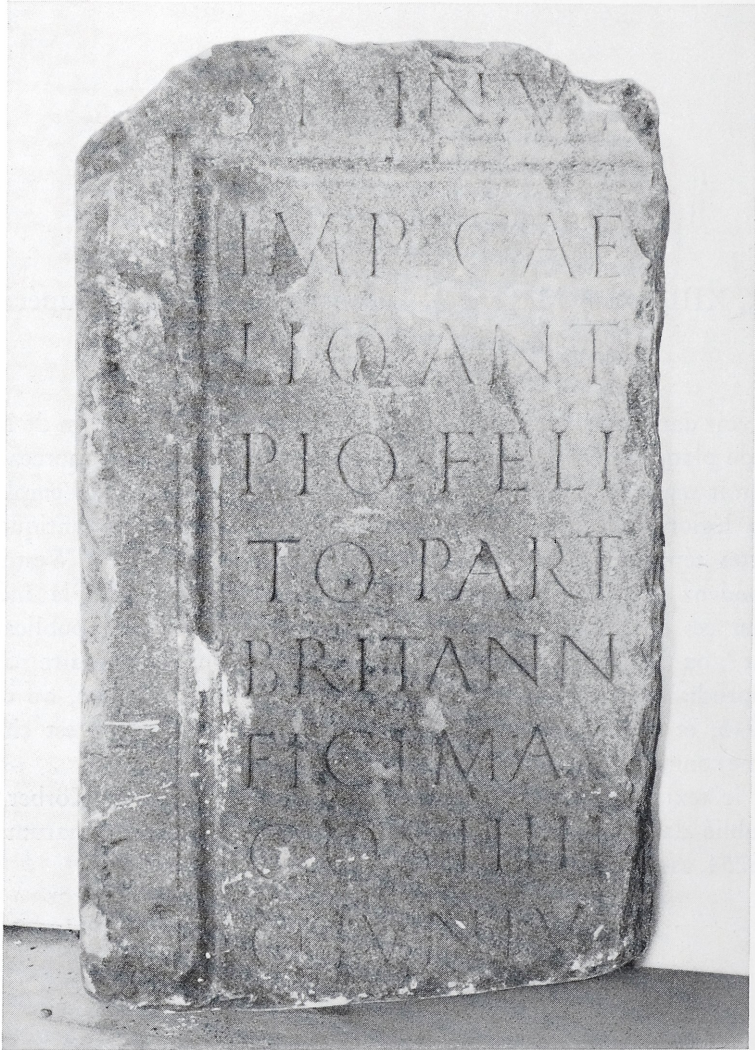 INV
IMP CAE
LIO ANT
PIO FELI
TO PART
BRITANN
FICI MA
COS IIII
C IVNIV